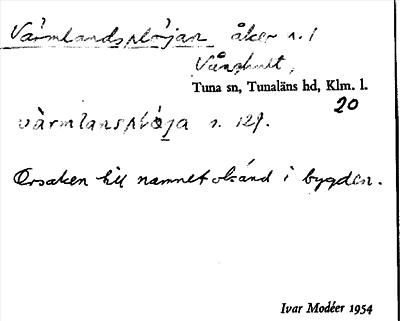 Värmlandsplöjan åker n. 1
Tuna sn, Tunaläns hd, Klm. l.
20
värmlansplöja s. 127.
Orsaken till namnet okänd i bygden.
Ivar Modéer 1954